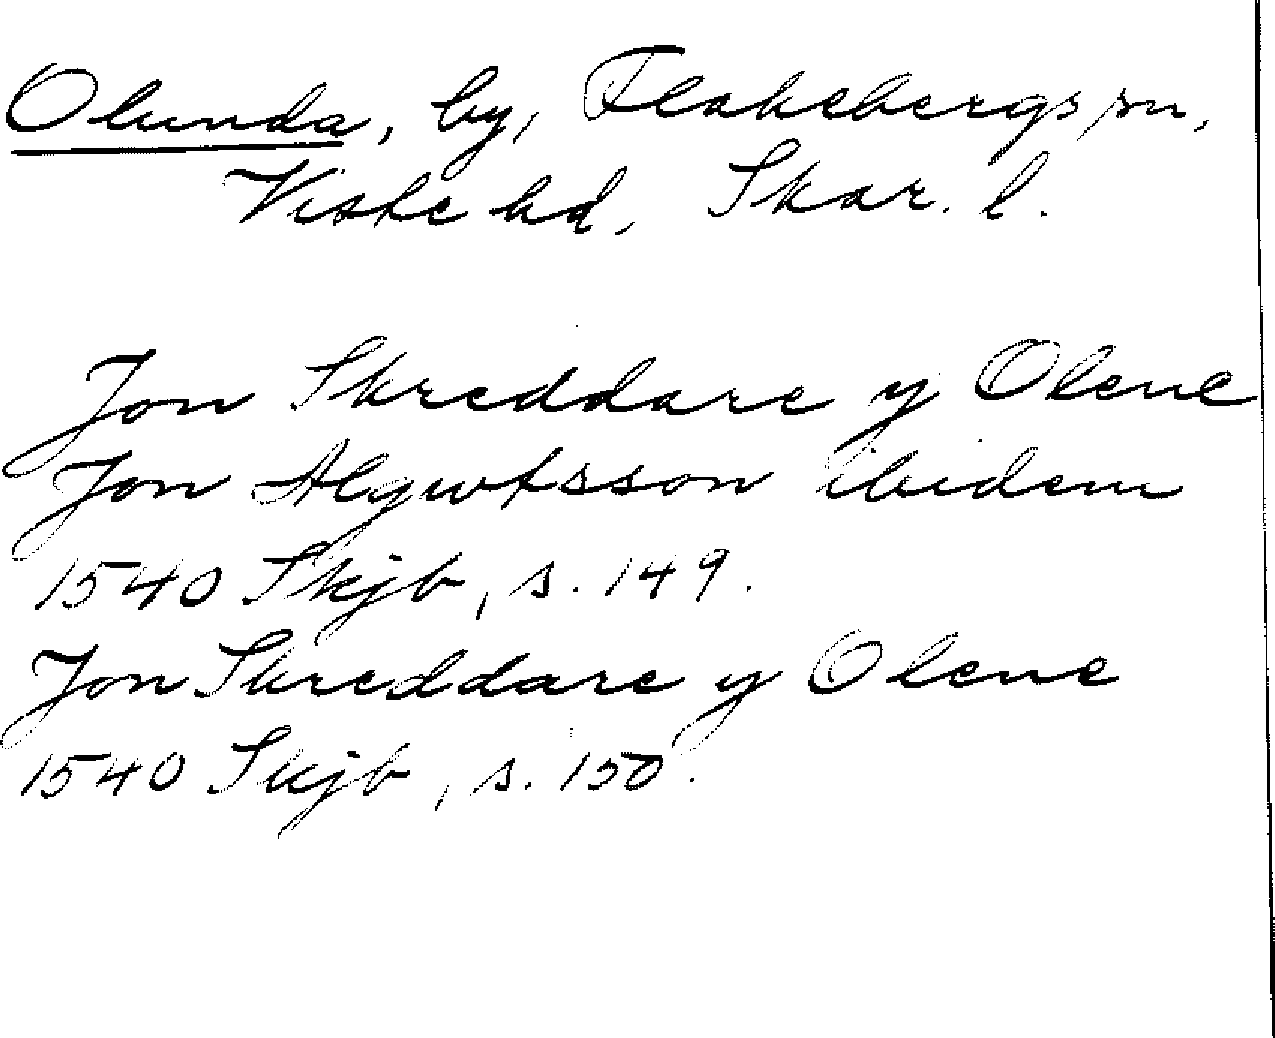 Olunda, by, Flakebergs sn,
Viske hd, Skar. l.
Jon Skreddare y Olene
Jon Algwtsson ibidem
1540 Skjb, s. 149.
Jon Skreddare y Olene
1540 Skjb, s. 150.